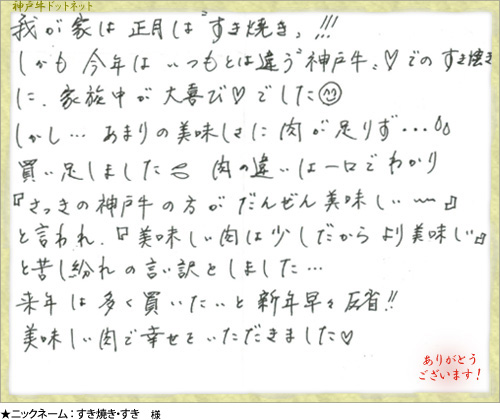 神戸牛ドットネット
我が家は正月は"すき焼き"!!!
しかも今年はいつもとは違う"神戸牛"♡でのすき焼き
に、家族中が大喜び♡でした☺
しかし…あまりの美味しさに肉が足りず…
買い足しました 肉の違いは一口でわかり
『さっきの神戸牛の方がだんぜん美味しい〜』
と言われ、『美味しい肉は少しだからより美味しい』
と苦し紛れの言い訳としました…
来年は多く買いたいと新年早々反省!!
美味しい肉で幸せをいただきました♡
ありがとう
ございます!
★ニックネーム:すき焼き・すき 様